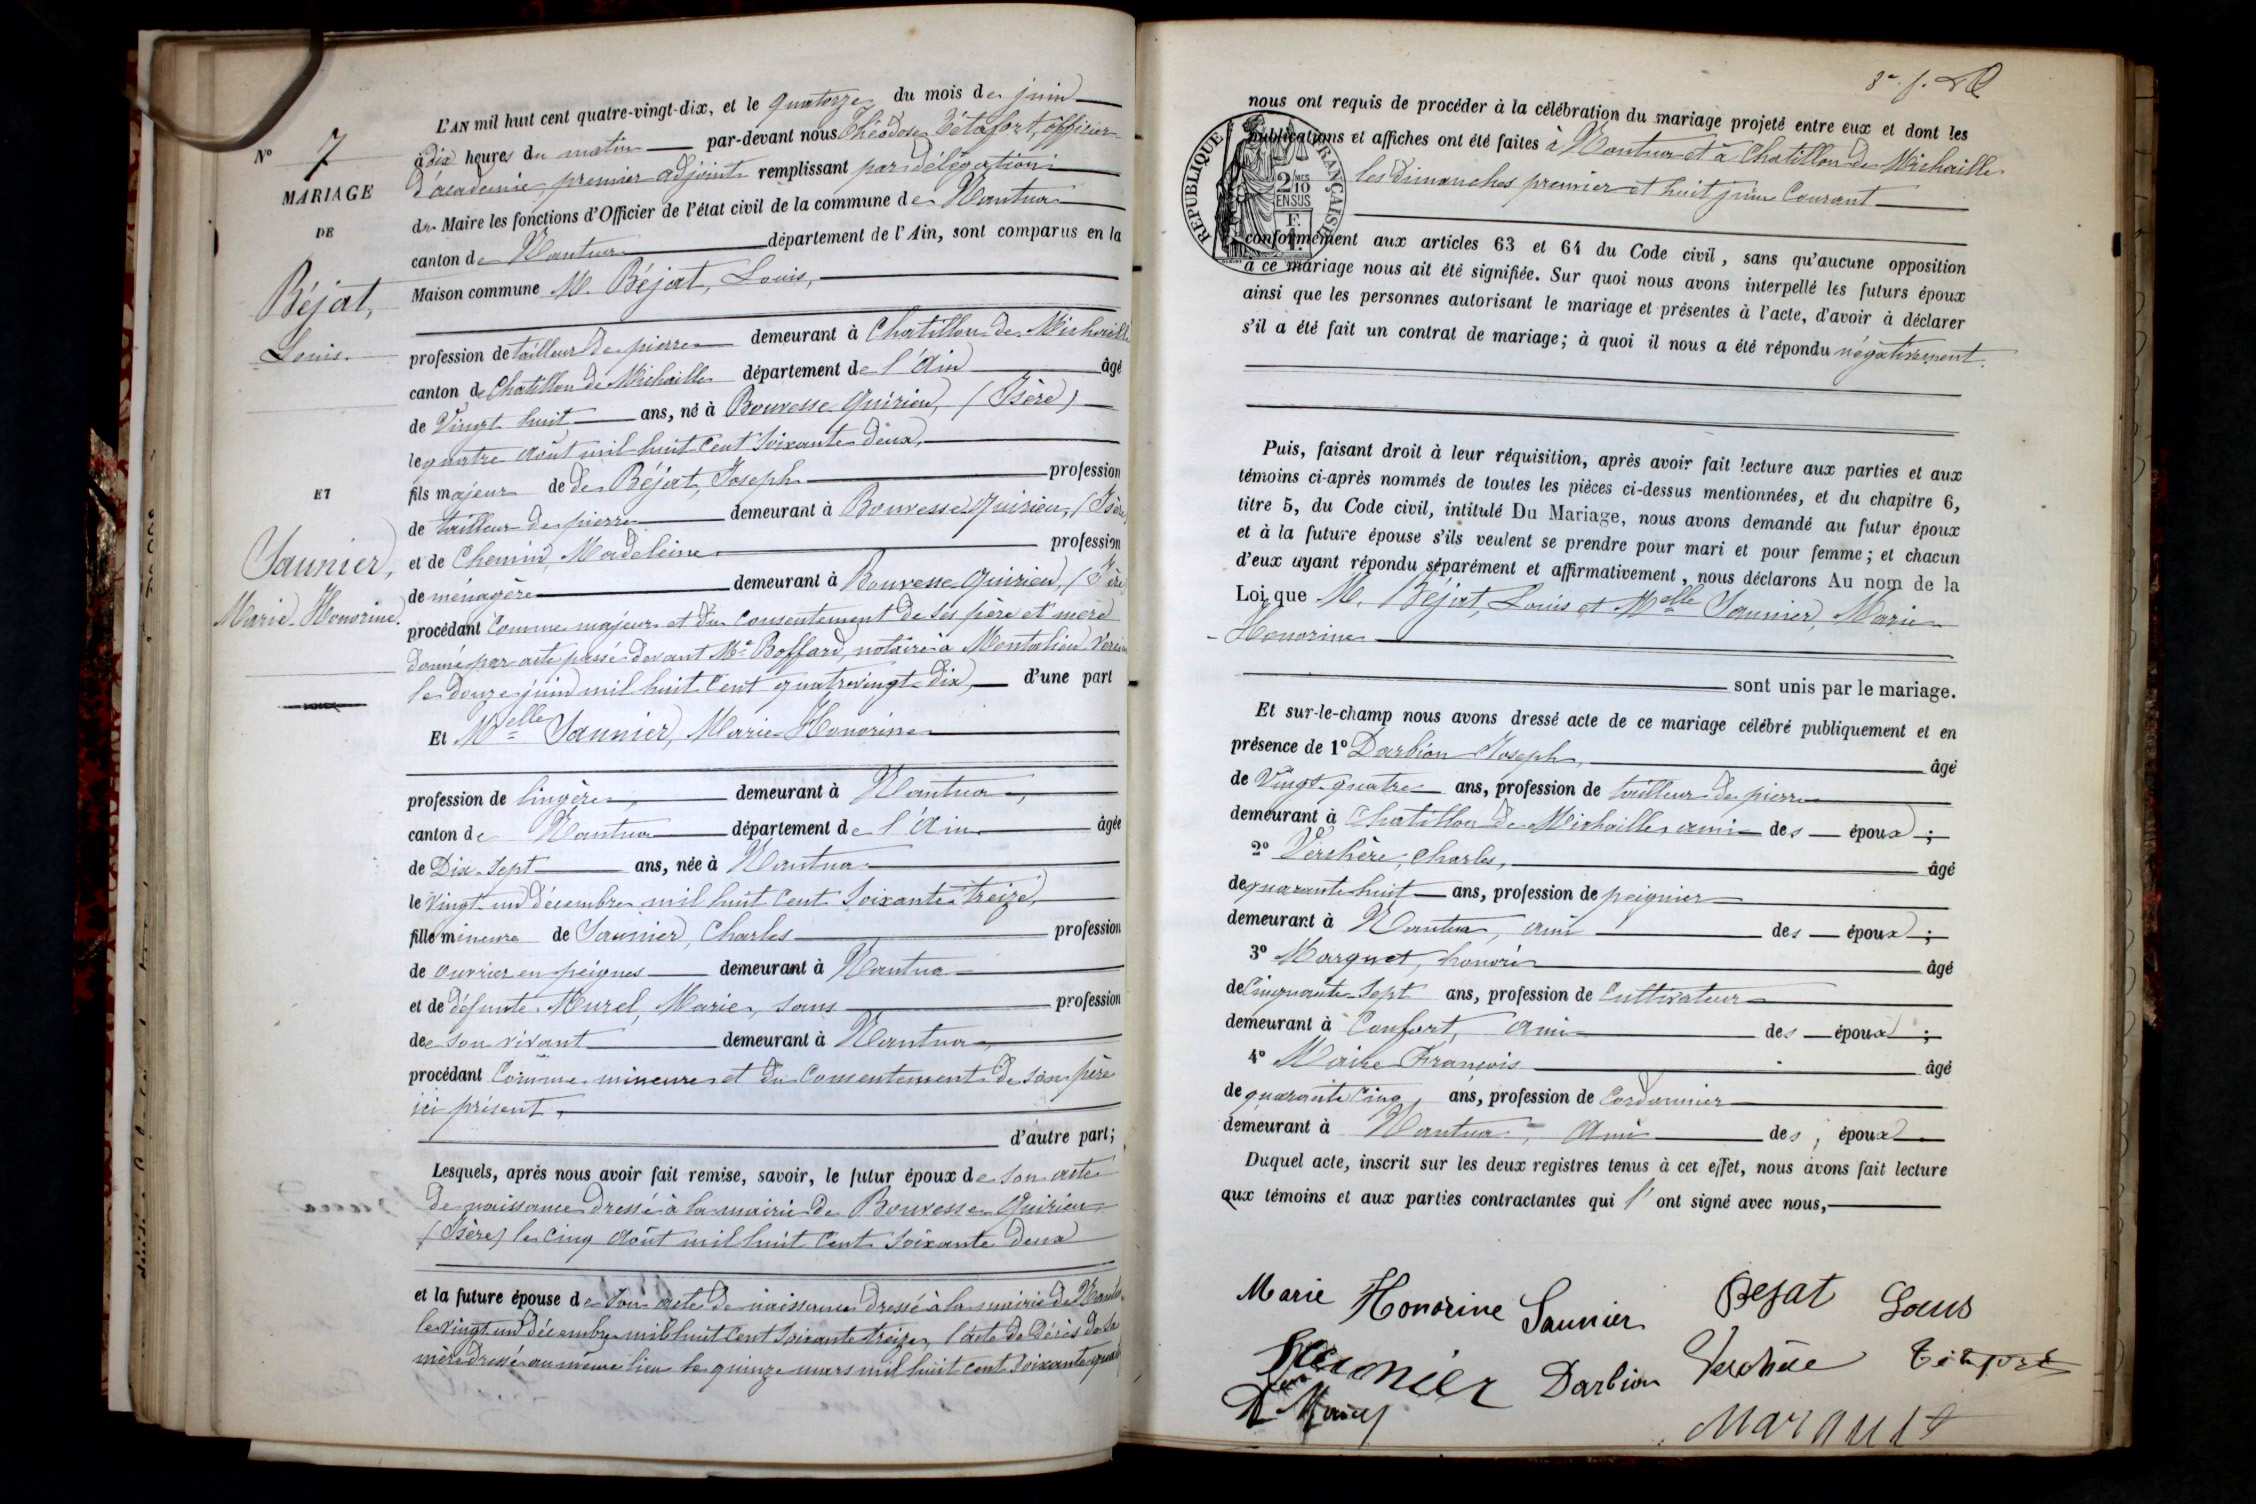 L'AN mil huit cent quatre-vingt-dix, et le quatorze du mois de juin
N° 7
à dix heures du matin par-devant nous Théodose Tétafort, officier
d'academie, premier adjoint remplissant par délégation
MARIAGE
DE
de Maire les fonctions d'Officier de l'état civil de la commune de Nantua
canton de Nantua département de l'Ain, sont comparus en la
Béjat,
Louis.
Maison commune M. Béjat, Louis,
profession de tailleur de pierre demeurant à Chatillon de Michaille
canton de Chatillon de Michaille département de l'Ain âgé
de Vingt huit ans, né à Bouvesse Quirieu, (Isère)
le quatre août mil huit cent soixante deux,
ET
fils majeur de de Béjat, Joseph profession
de tailleur de pierre demeurant à Bouvesse Quirieu, (Isère)
Saunier,
Marie Honorine.
et de Chemin, Madeleine profession
de ménagère demeurant à Bouvesse Quirieu, (Isère)
procédant comme majeur et du consentement de ses père et mère
donné par acte passé devant Me Boffard, notaire à Montalieu Vercieu
le douze juin mil huit cent quatre vingt dix, d'une part
Et Melle Saunier, Marie Honorine
profession de lingère, demeurant à Nantua,
canton de Nantua département de l'Ain âgée
de Dix-sept ans, née à Nantua
le vingt un décembre mil huit cent soixante treize,
fille mineure de Saunier, Charles profession
de ouvrier en peignes demeurant à Nantua
et de défunte Murel, Marie, sans profession
de son vivant demeurant à Nantua
procédant comme mineure et du consentement de son père
ici présent,
d'autre part;
Lesquels, après nous avoir fait remise, savoir, le futur époux de son acte
de naissance dressé à la mairie de Bouvesse Quirieu
(Isère) le cinq août mil huit cent soixante deux
et la future épouse de son acte de naissance dressé à la mairie de Nantua
le vingt un décembre mil huit cent soixante treize, l'acte de décès de sa
mère dressé au même lieu le quinze mars mil huit cent soixante
nous ont requis de procéder à la célébration du mariage projeté entre eux et dont les
publications et affiches ont été faites à Nantua et à Chatillon de Michaille
les dimanches premier et huit juin courant
RÉPUBLIQUE FRANÇAISE
2/10 EN SUS
conformément aux articles 63 et 64 du Code civil, sans qu'aucune opposition
à ce mariage nous ait été signifiée. Sur quoi nous avons interpellé les futurs époux
ainsi que les personnes autorisant le mariage et présentes à l'acte, d'avoir à déclarer
s'il a été fait un contrat de mariage; à quoi il nous a été répondu négativement.
Puis, faisant droit à leur réquisition, après avoir fait lecture aux parties et aux
témoins ci-après nommés de toutes les pièces ci-dessus mentionnées, et du chapitre 6,
titre 5, du Code civil, intitulé Du Mariage, nous avons demandé au futur époux
et à la future épouse s'ils veulent se prendre pour mari et pour femme; et chacun
d'eux ayant répondu séparément et affirmativement, nous déclarons Au nom de la
Loi que M. Béjat, Louis et Melle Saunier, Marie
Honorine
sont unis par le mariage.
Et sur-le-champ nous avons dressé acte de ce mariage célébré publiquement et en
présence de 1° Darbion Joseph, âgé
de Vingt-quatre ans, profession de tailleur de pierre
demeurant à Chatillon de Michaille, ami des époux;
2° Verchère, Charles, âgé
de quarante huit ans, profession de peignier
demeurant à Nantua, ami des époux;
3° Marquet, honoré âgé
de Cinquante-sept ans, profession de Cultivateur
demeurant à Confort, ami des époux;
4° Maire François âgé
de quarante cinq ans, profession de Cordonnier
demeurant à Nantua, ami des époux
Duquel acte, inscrit sur les deux registres tenus à cet effet, nous avons fait lecture
aux témoins et aux parties contractantes qui l'ont signé avec nous,
Marie Honorine Saunier Bejat Louis
Saunier Darbion Verchère Tétafort